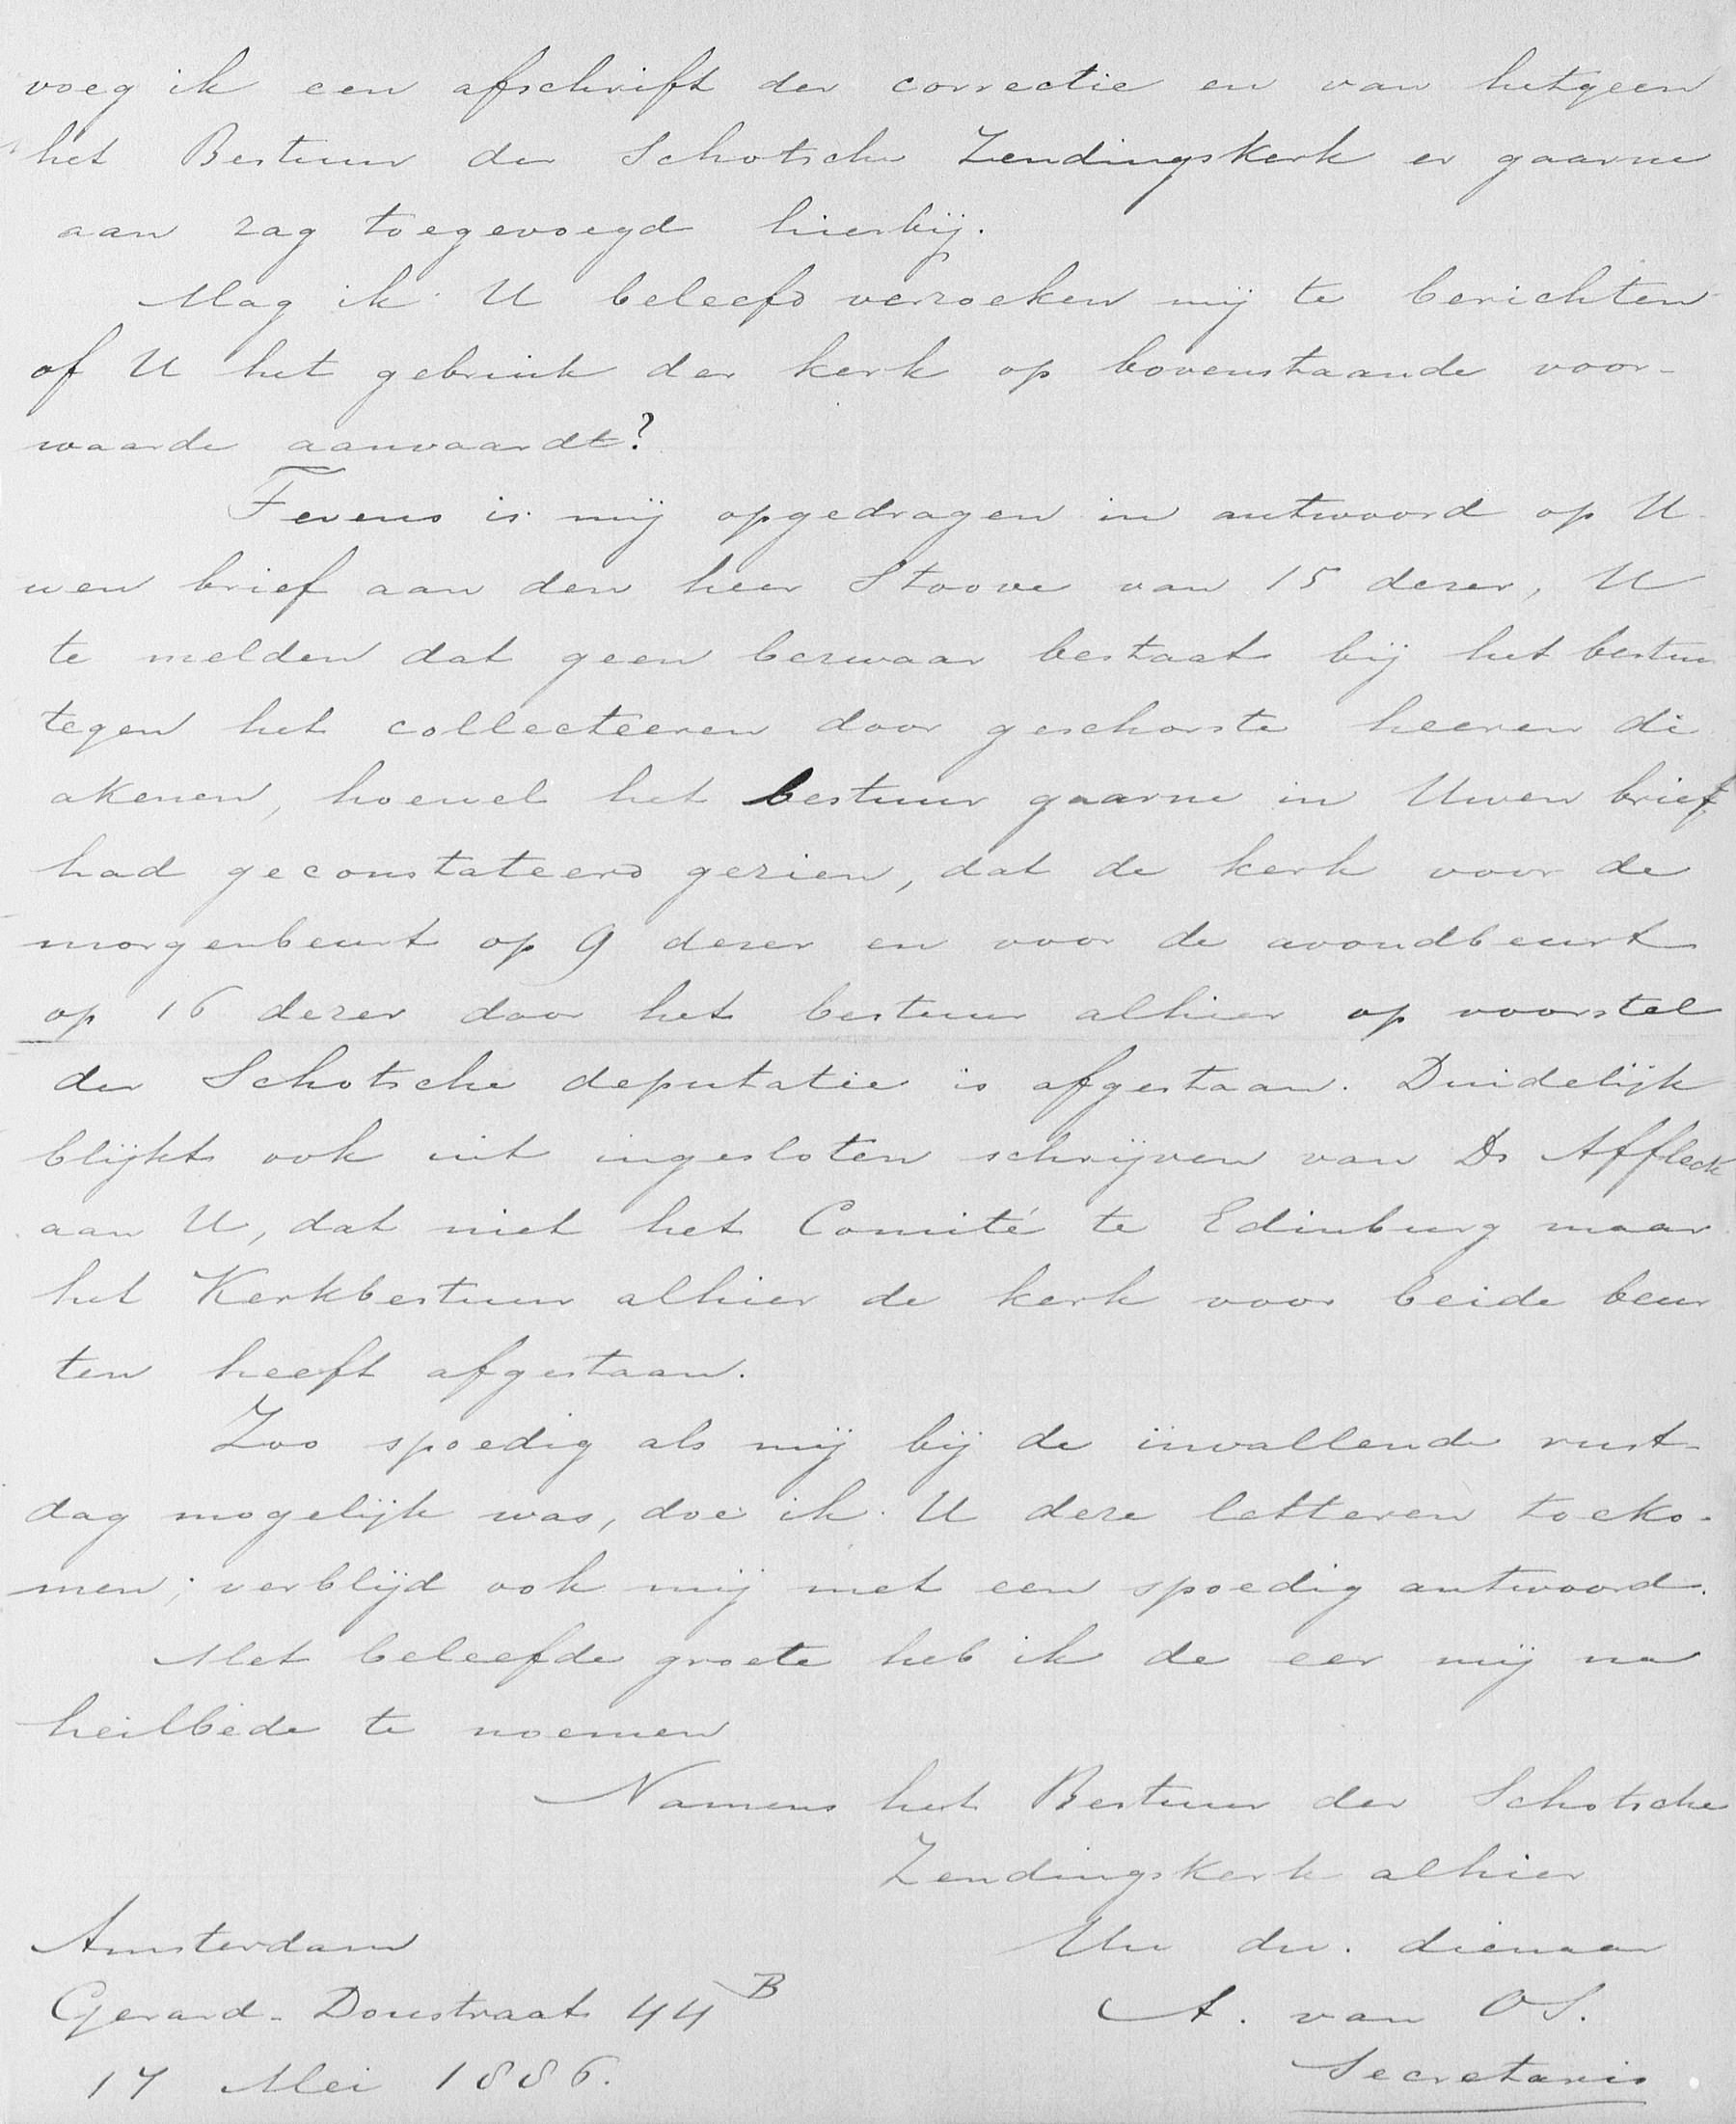 voeg ik een afschrift der correctie en van hetgeen
het Bestuur der Schotsche Zendingskerk er gaarne
aan zag toegevoegd hierbij.
Mag ik U beleefd verzoeken mij te berichten
of U het gebruik der kerk op bovenstaande voor-
waarde aanvaardt?
Tevens is mij opgedragen in antwoord op U
wen brief aan den heer Stoove van 15 dezer, U
te melden dat geen bezwaar bestaat bij het bestuur
tegen het collecteeren door geschorste heeren di
akenen, hoewel het bestuur gaarne in Uwen brief
had geconstateerd gezien, dat de kerk voor de
morgenbeurt op 9 dezer en voor de avondbeurt
op 16 dezer door het bestuur alhier op voorstel
der Schotsche deputatie is afgestaan. Duidelijk
blijkt ook uit ingesloten schrijven van Ds Affleck
aan U, dat niet het Comité te Edinburg maar
het Kerkbestuur alhier de kerk voor beide beur
ten heeft afgestaan.
Zoo spoedig als mij bij de invallende rust-
dag mogelijk was, doe ik U deze letteren toeko-
men; verblijd ook mij met een spoedig antwoord.
Met beleefde groete heb ik de eer mij na
heilbede te noemen
Namens het Bestuur der Schotsche
Zendingskerk alhier
Amsterdam Uw dw. dienaar
Gerard-Doustraat 44 B A. van OS.
17 Mei 1886. Secretaris